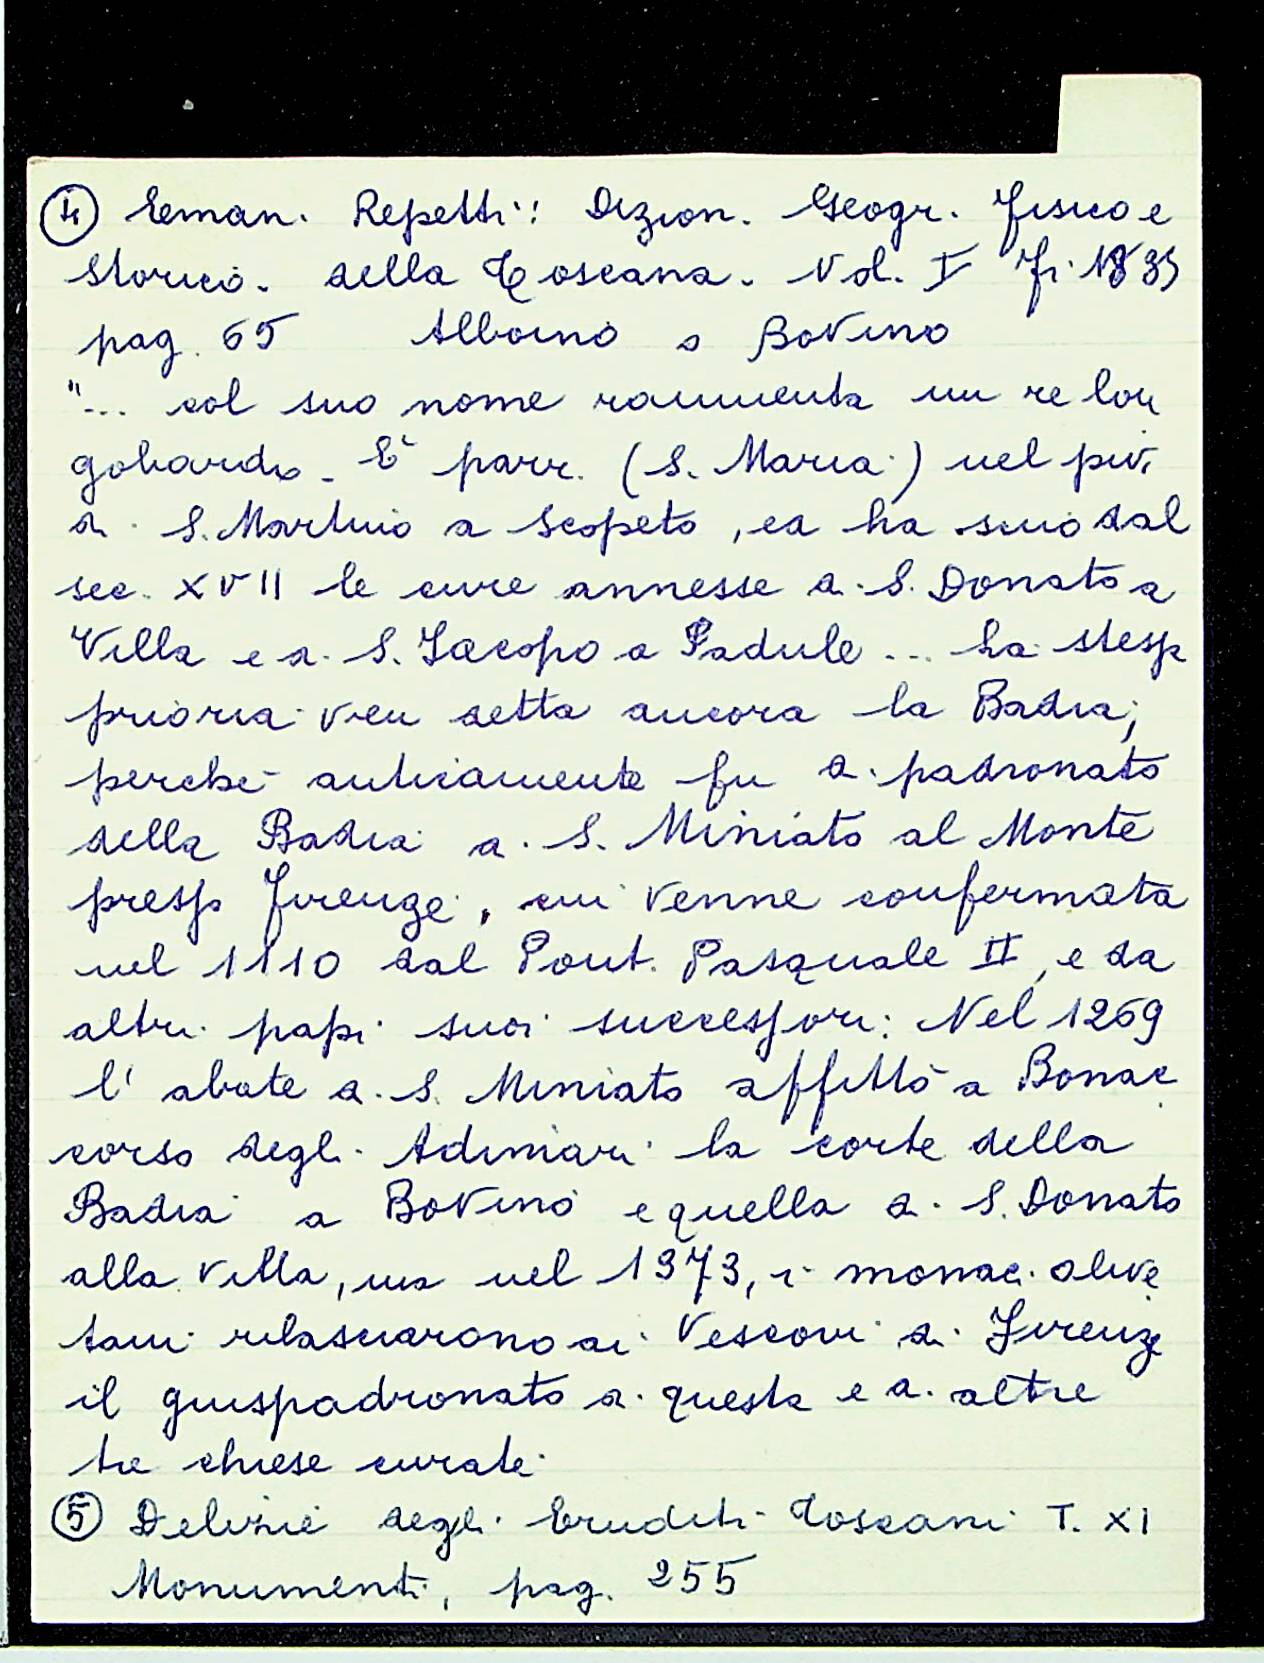 ④ Eman. Repetti: Dizion. Geogr. fisico e
storico. della Toscana. Vol. I Fi. 1833
pag. 65 Alboino o Bovino
"... col suo nome rammenta un re lon
gobardo. È parr. (S. Maria) nel piv.
di S. Martino a Scopeto, ed ha sino dal
sec. XVII le cure annesse di S. Donato a
Villa e di S. Jacopo a Padule ... ha stessa
prioria vien detta ancora la Badia;
perché anticamente fu di padronato
della Badia di S. Miniato al Monte
presso Firenze, cui venne confermata
nel 1110 dal Pont. Pasquale II, e da
altri papi suoi successori: Nel 1269
l'abate di S. Miniato affittò a Bonac
corso degli Adimari la corte della
Badia a Bovino e quella di S. Donato
alla Villa, ma nel 1373, i monaci olive
tani rilasciarono ai Vescovi di Firenze
il giuspadronato di questa e di altre
tre chiese curate.
⑤ Delizie degli Eruditi Toscani T. XI
Monumenti, pag. 255